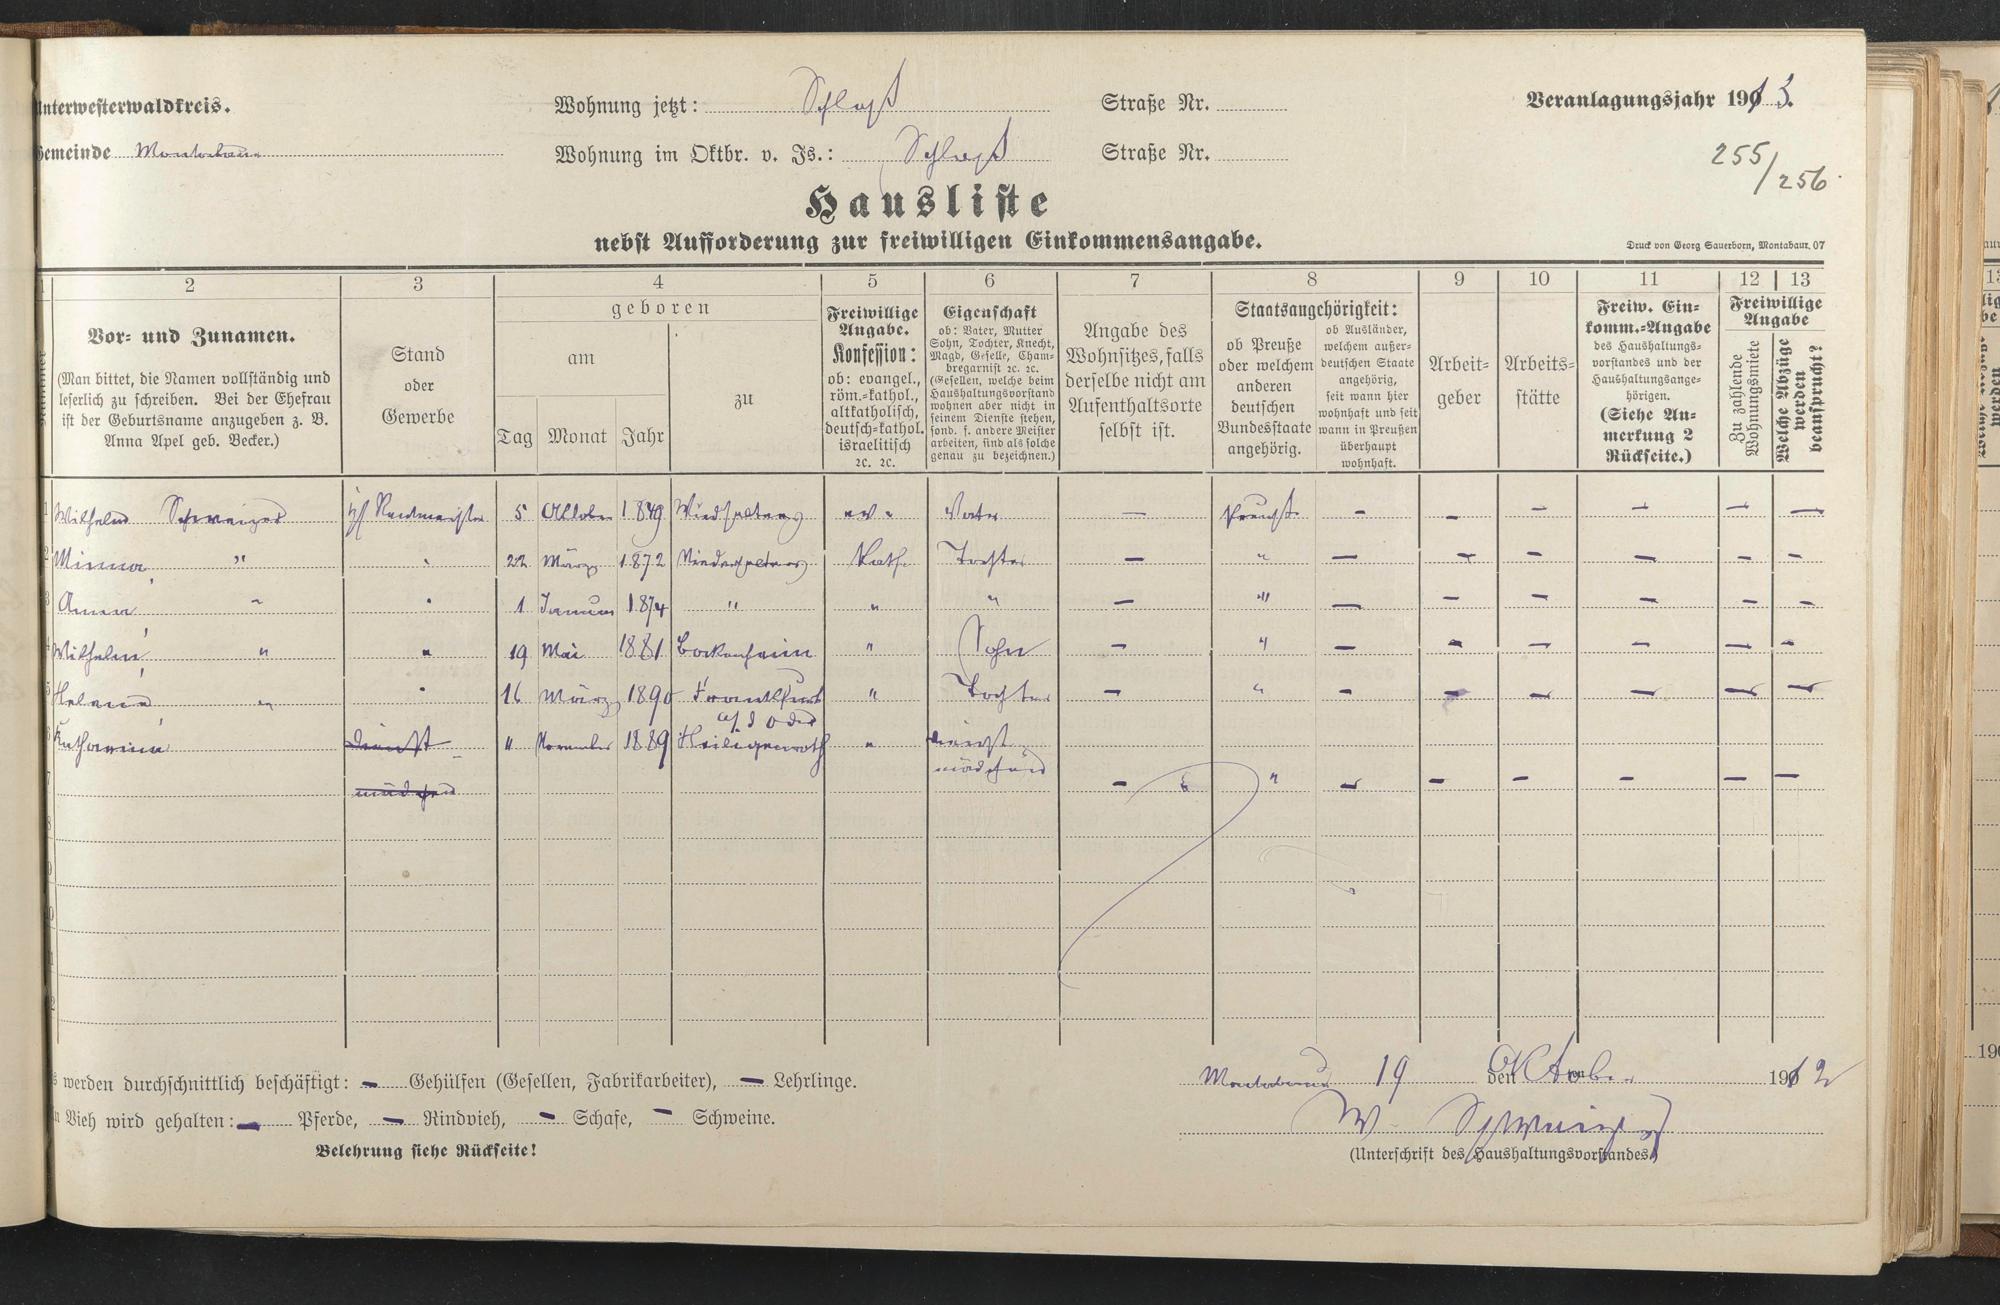 Unterwesterwaldkreis.
Wohnung jetzt: Schloß Straße Nr.
Veranlagungsjahr 1913.
Gemeinde Montabaur
Wohnung im Oktbr. v. Js.: Schloß Straße Nr.
255/256
Hausliste
nebst Aufforderung zur freiwilligen Einkommensangabe.
Druck von Georg Sauerborn, Montabaur. 07
2 3 4 5 6 7 8 9 10 11 12 13
Nummer
Vor- und Zunamen.
(Man bittet, die Namen vollständig und
leserlich zu schreiben. Bei der Ehefrau
ist der Geburtsname anzugeben z. B.
Anna Apel geb. Becker.)
Stand
oder
Gewerbe
geboren
am
Tag Monat Jahr
zu
Freiwillige
Angabe.
Konfession:
ob: evangel.,
röm.-kathol.,
altkatholisch,
deutsch-kathol.
israelitisch
2c. 2c.
Eigenschaft
ob: Vater, Mutter
Sohn, Tochter, Knecht,
Magd, Geselle, Cham-
bregarnist 2c. 2c.
(Gesellen, welche beim
Haushaltungsvorstand
wohnen aber nicht in
seinem Dienste stehen,
sond. f. andere Meister
arbeiten, sind als solche
genau zu bezeichnen.)
Angabe des
Wohnsitzes, falls
derselbe nicht am
Aufenthaltsorte
selbst ist.
Staatsangehörigkeit:
ob Preuße
oder welchem
anderen
deutschen
Bundesstaate
angehörig.
ob Ausländer,
welchem außer-
deutschen Staate
angehörig,
seit wann hier
wohnhaft und seit
wann in Preußen
überhaupt
wohnhaft.
Arbeit-
geber
Arbeits-
stätte
Freiw. Ein-
komm.-Angabe
des Haushaltungs-
vorstandes und der
Haushaltungsange-
hörigen.
(Siehe An-
merkung 2
Rückseite.)
Freiwillige
Angabe
Zu zahlende
Wohnungsmiete
Welche Abzüge
werden
beansprucht?
Wilhelm Schweizer Rentmeister 5 Oktober 1849 ev. Vater — Preuße - - - - - —
Minna " " 22 März 1872 Niederselters Kath. Tochter — " — - - - - -
Anna " " 1 Januar 1874 " " " — " — - - - - -
Wilhelm " " 19 Mai 1881 Bockenheim " Sohn — " — - - - - -
Helena " " 16 März 1890 Frankfurt " Tochter — " - - - - - -
a/d Oder
Katharina dienst " November 1889 Heiligenroth " dienst
mädchen mädchen — " - - - - - -
werden durchschnittlich beschäftigt: — Gehülfen (Gesellen, Fabrikarbeiter), — Lehrlinge.
Vieh wird gehalten: — Pferde, — Rindvieh, — Schafe, — Schweine.
Belehrung siehe Rückseite!
Montabaur 19 den Oktober 1912
W. Schweizer
(Unterschrift des Haushaltungsvorstandes)